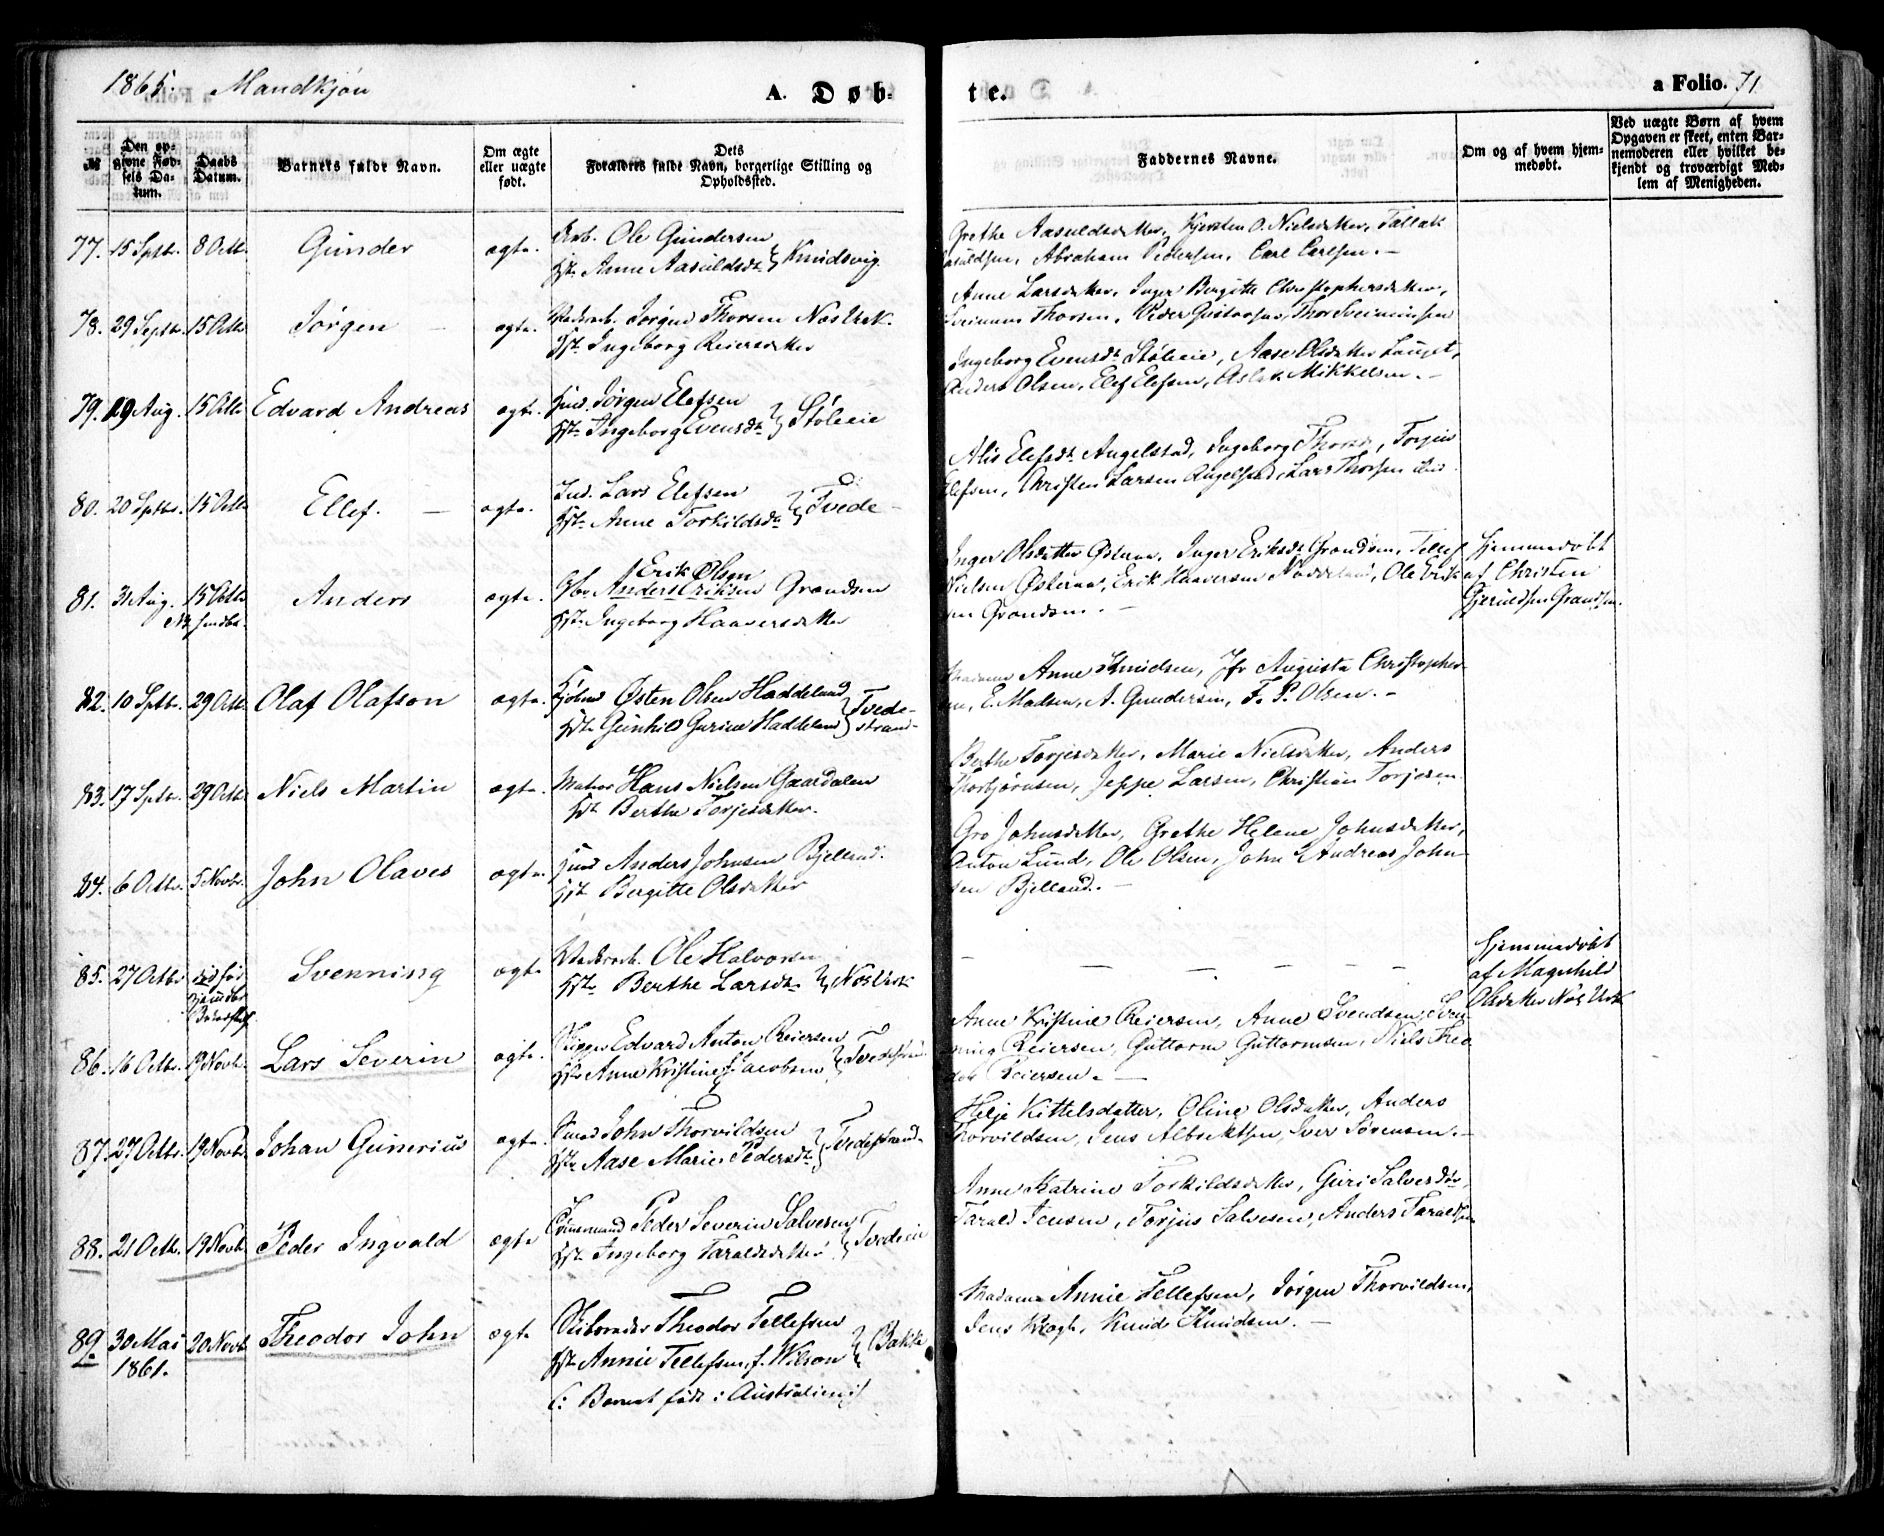 1865. Mandkjøn
A. Døb-
te.
a Folio. 71
№
Den op-
givne Fød-
sels Da-
tum.
Daabs
Datum.
Barnets fulde Navn.
Om ægte
eller uægte
født.
Dets
Forældres fulde Navn, borgerlige Stilling og
Opholdssted.
Faddernes Navne.
Om og af hvem hjem-
medøbt.
Ved uægte Børn af hvem
Opgaven er skeet, enten Bar-
nemoderen eller hvilket be-
kjendt og troværdigt Med-
lem af Menigheden.
77. 15 Septbr. 8 Octb. Gunder ægte. Arb. Ole Gundersen
Hst. Anne Aasuldsdt. Knudsvig.
Grethe Aasuldsdatter, Kjersten O. Nielsdatter, Tallak
Aasuldsen, Abraham Pedersen, Carl Carlsen. -
78. 29 Septbr. 15 Octb. Jørgen - ægte. Jørgen Thorsen Næs Verk.
Hst. Ingeborg Reiersdatter
Anne Larsdatter, Inger Bergitte Christophersdatter,
Thorsen, Peder Gustavsen, Thor
79. 19 Aug. 15 Octb. Edvard Andreas ægte. Jørgen Elefsen
Hst. Ingeborg Evensdt. Støleeie
Ingeborg Evensdt. Støleeie, Aase Olsdatter
Anders Olsen, Elef Elefsen, Aslak Mikkelsen. -
80. 20 Septbr. 15 Octb. Ellef. - ægte. Ind. Lars Elefsen
Hst. Anne Torkildsdt. Tvede -
Alis Elefsdt. Angelstad, Ingeborg Thorsd., Torjus
Elefsen, Christen Larsen Angelstad, Lars Thorsen ibid.
81. 31 Aug. 15 Octb. Anders ægte. Erik Olsen
Gbr. Anders Eriksen Grandsen
Hst. Ingeborg Haaversdatter
Inger Olsdatter Østeraa, Inger Eriksdt. Grandsen, Tellef
Nielsen Østeraa, Erik Haaversen, Ole Erik-
sen Grandsen. -
Hjemmedøbt
af Christen
Gjeruldsen Grandsen.
82. 10 Septbr. 29 Octb. Olaf Olafson ægte. Østen Olsen Haddeland
Hst. Gunhild Gurine Haddeland Tvede-
strand-
Madame Anne Knudsen, Jfr Augusta Christopher-
sen, E. Madsen, A. Gundersen, F. P. Olsen. -
83. 17 Septbr. 29 Octb. Niels Martin ægte. Matros Hans Nielsen Gaardalen
Hst. Berthe Torjesdatter.
Berthe Torjesdatter, Marie Nielsdatter, Anders
Thorbjørnsen, Jeppe Larsen, Christian Torjesen
84. 6 Octbr. 5 Novbr. John Olaves ægte. Anders Johnsen Bjelland.
Hst. Bergitte Olsdatter
Gro Johnsdatter, Grethe Helene Johnsdatter,
Anton Lund, Ole Olsen, John & Andreas John-
sen Bjelland. -
85. 27 Octbr. Svenning ægte Ole Halvorsen
Hst. Berthe Larsdt. Næs Verk
- - - - - -
Hjemmedøbt
af Magnhild
Olsdatter Næs Verk
86. 16 Octbr. 19 Novbr. Lars Severin ægte. Edvard Anton Reiersen
Hst. Anne Kristine f. Jacobsen Tvedestrand
Anne Kristine Reiersen, Anne Svendsen, Sven-
ning Reiersen, Guttorm Guttormsen, Niels Theo-
dor Reiersen. -
87. 27 Octbr. 19 Novbr. Johan Gunerius ægte. John Thorvildsen
Hst. Aase Marie Pedersdt. Tvedestrand-
Helje Kittelsdatter, Oline Olsdatter, Anders
Thorvildsen, Jens Albrektsen, Iver Sørensen. -
88. 21 Octb. 19 Novbr. Peder Ingvald ægte Peder Severin Salvesen
Hst. Ingeborg Taraldsdatter Tvedeeie
Anne Katrine Torkildsdatter, Guri Salvesdtr,
Tarald Jensen, Torjus Salvesen, Anders Taraldsen
89. 30 Mai
1861. 20 Novb. Theodor John ægte Skibsreder Theodor Tellefsen
Hst. Annie Tellefsen f. Wilson Bakke
(: Barnet født i Australien :)
Madame Annie Tellefsen, Jørgen Thorvildsen,
Jens Krogh, Knud Knudsen. -